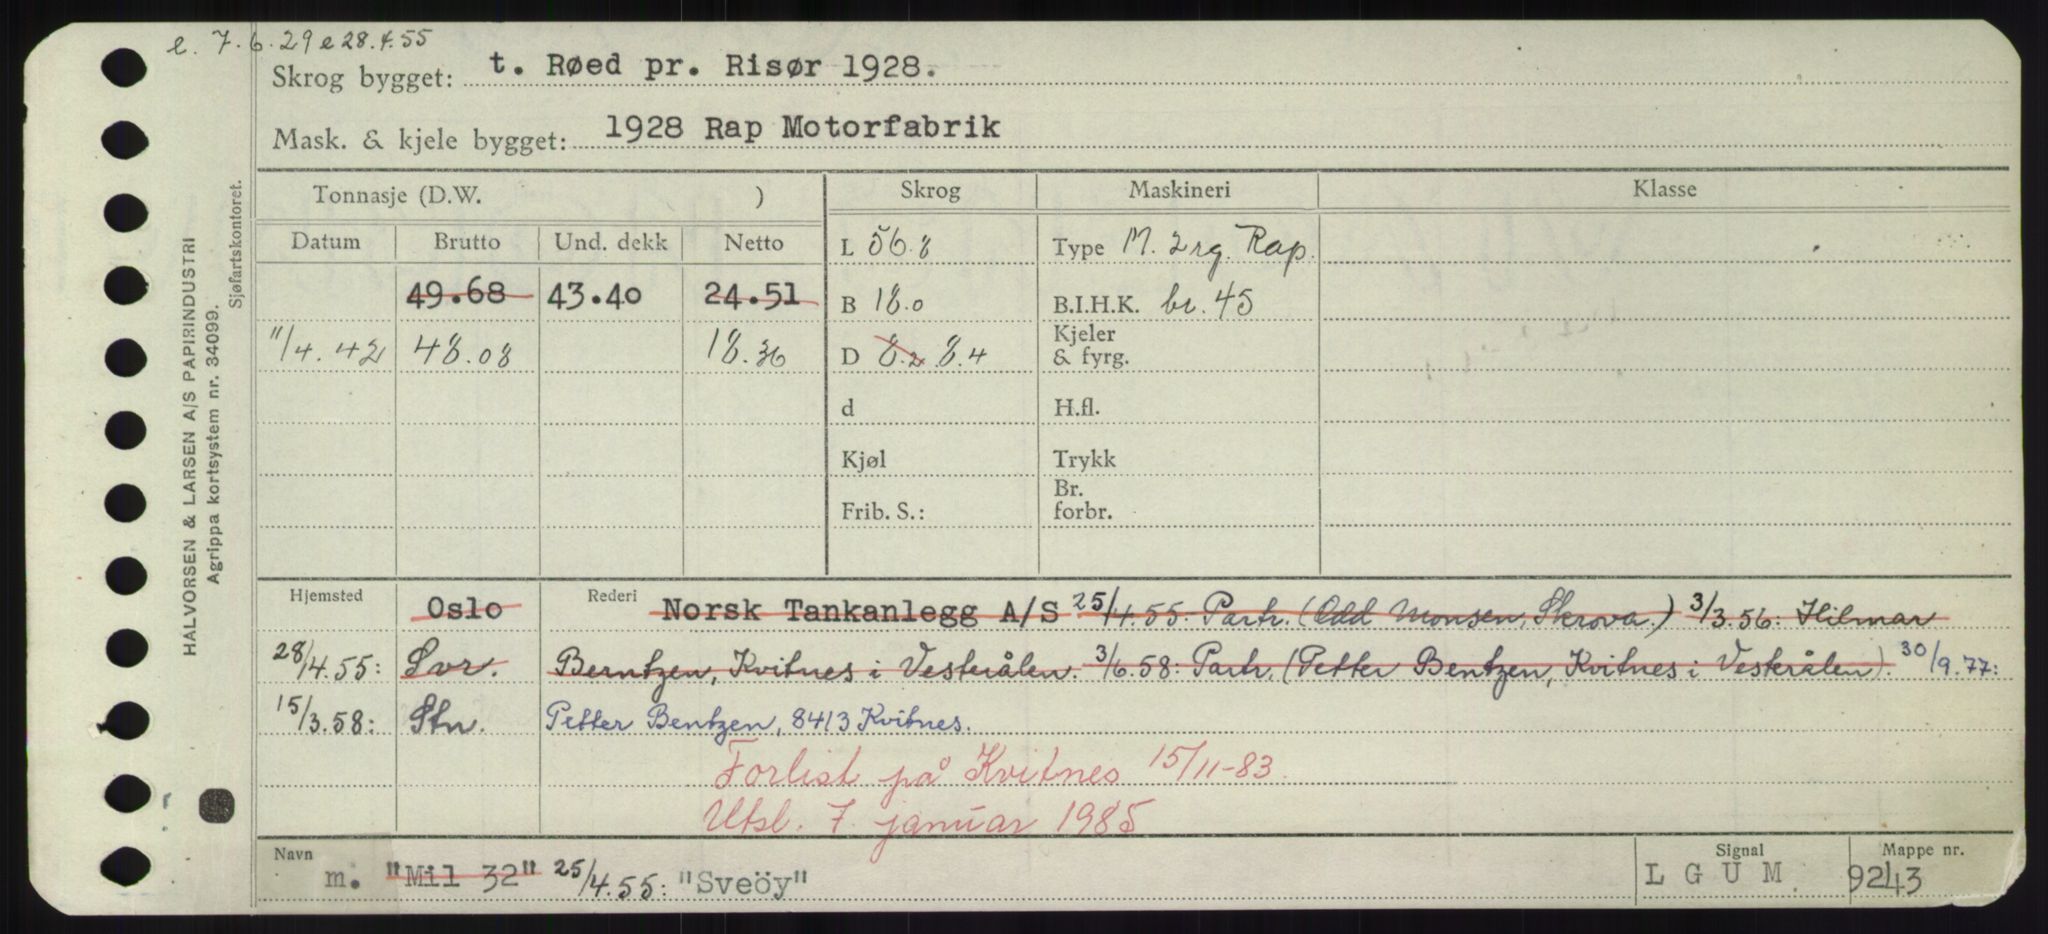 e. 7.6.29 e 28.4.55
Skrog bygget: t. Røed pr. Risør 1928.
Mask. & kjele bygget: 1928 Rap Motorfabrik
HALVORSEN & LARSEN A/S PAPIRINDUSTRI
Agrippa kortsystem nr. 34099.
Sjøfartskontoret.
Tonnasje (D.W. ) Skrog Maskineri Klasse
Datum Brutto Und. dekk Netto L 56.8 Type M. 2 rg. Rap.
49.68 43.40 24.51 B 18.0 B.I.H.K. br. 45
11/4.42 48.08 18.36 D 8.2 8.4 Kjeler & fyrg.
d H.fl.
Kjøl Trykk
Frib. S.: Br. forbr.
Hjemsted Oslo Rederi Norsk Tankanlegg A/S 25/4.55 Partr. (Odd Monsen, Skrova.) 3/3.56: Hilmar
28/4.55: Svr. Berntzen, Kvitnes i Vesterålen. 3/6.58: Partr. (Petter Bentzen, Kvitnes i Vesterålen). 30/9.77:
15/3.58: Stn. Petter Bentzen, 8413 Kvitnes.
Forlist på Kvitnes 15/11-83.
Utsl. 7. januar 1985
Navn m. "Mil 32" 25/4.55: "Sveöy" Signal L G U M. Mappe nr. 9243